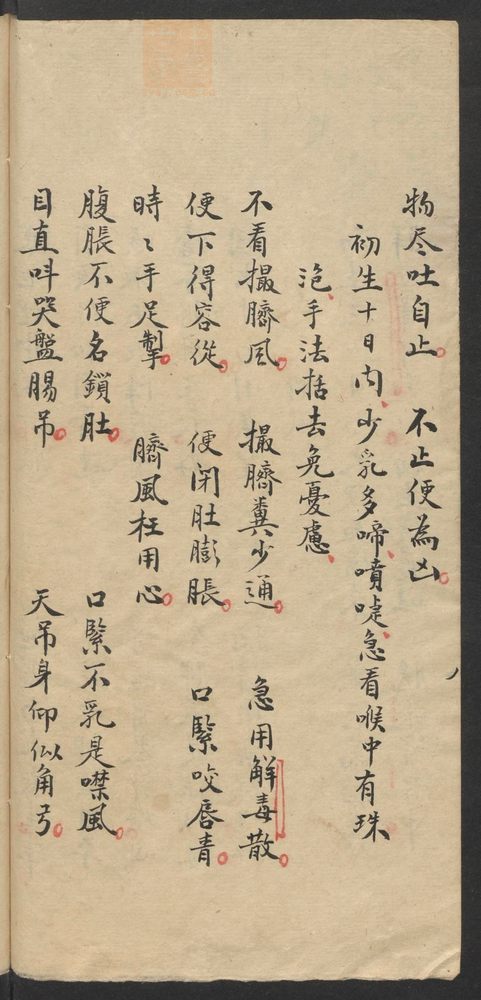 物尽吐自止 不止便為凶
初生十日内少乳多啼噴嚏急看喉中有珠
泡手法括去免憂慮
不看撮臍風 撮臍糞少通 急用解毒散
便下得容從 便闭肚膨脹 口緊咬唇青
時〻手足掣 臍風枉用心
腹脹不便名鎖肚 口緊不乳是噤風
目直呌哭盤腸吊 天吊身仰似角弓